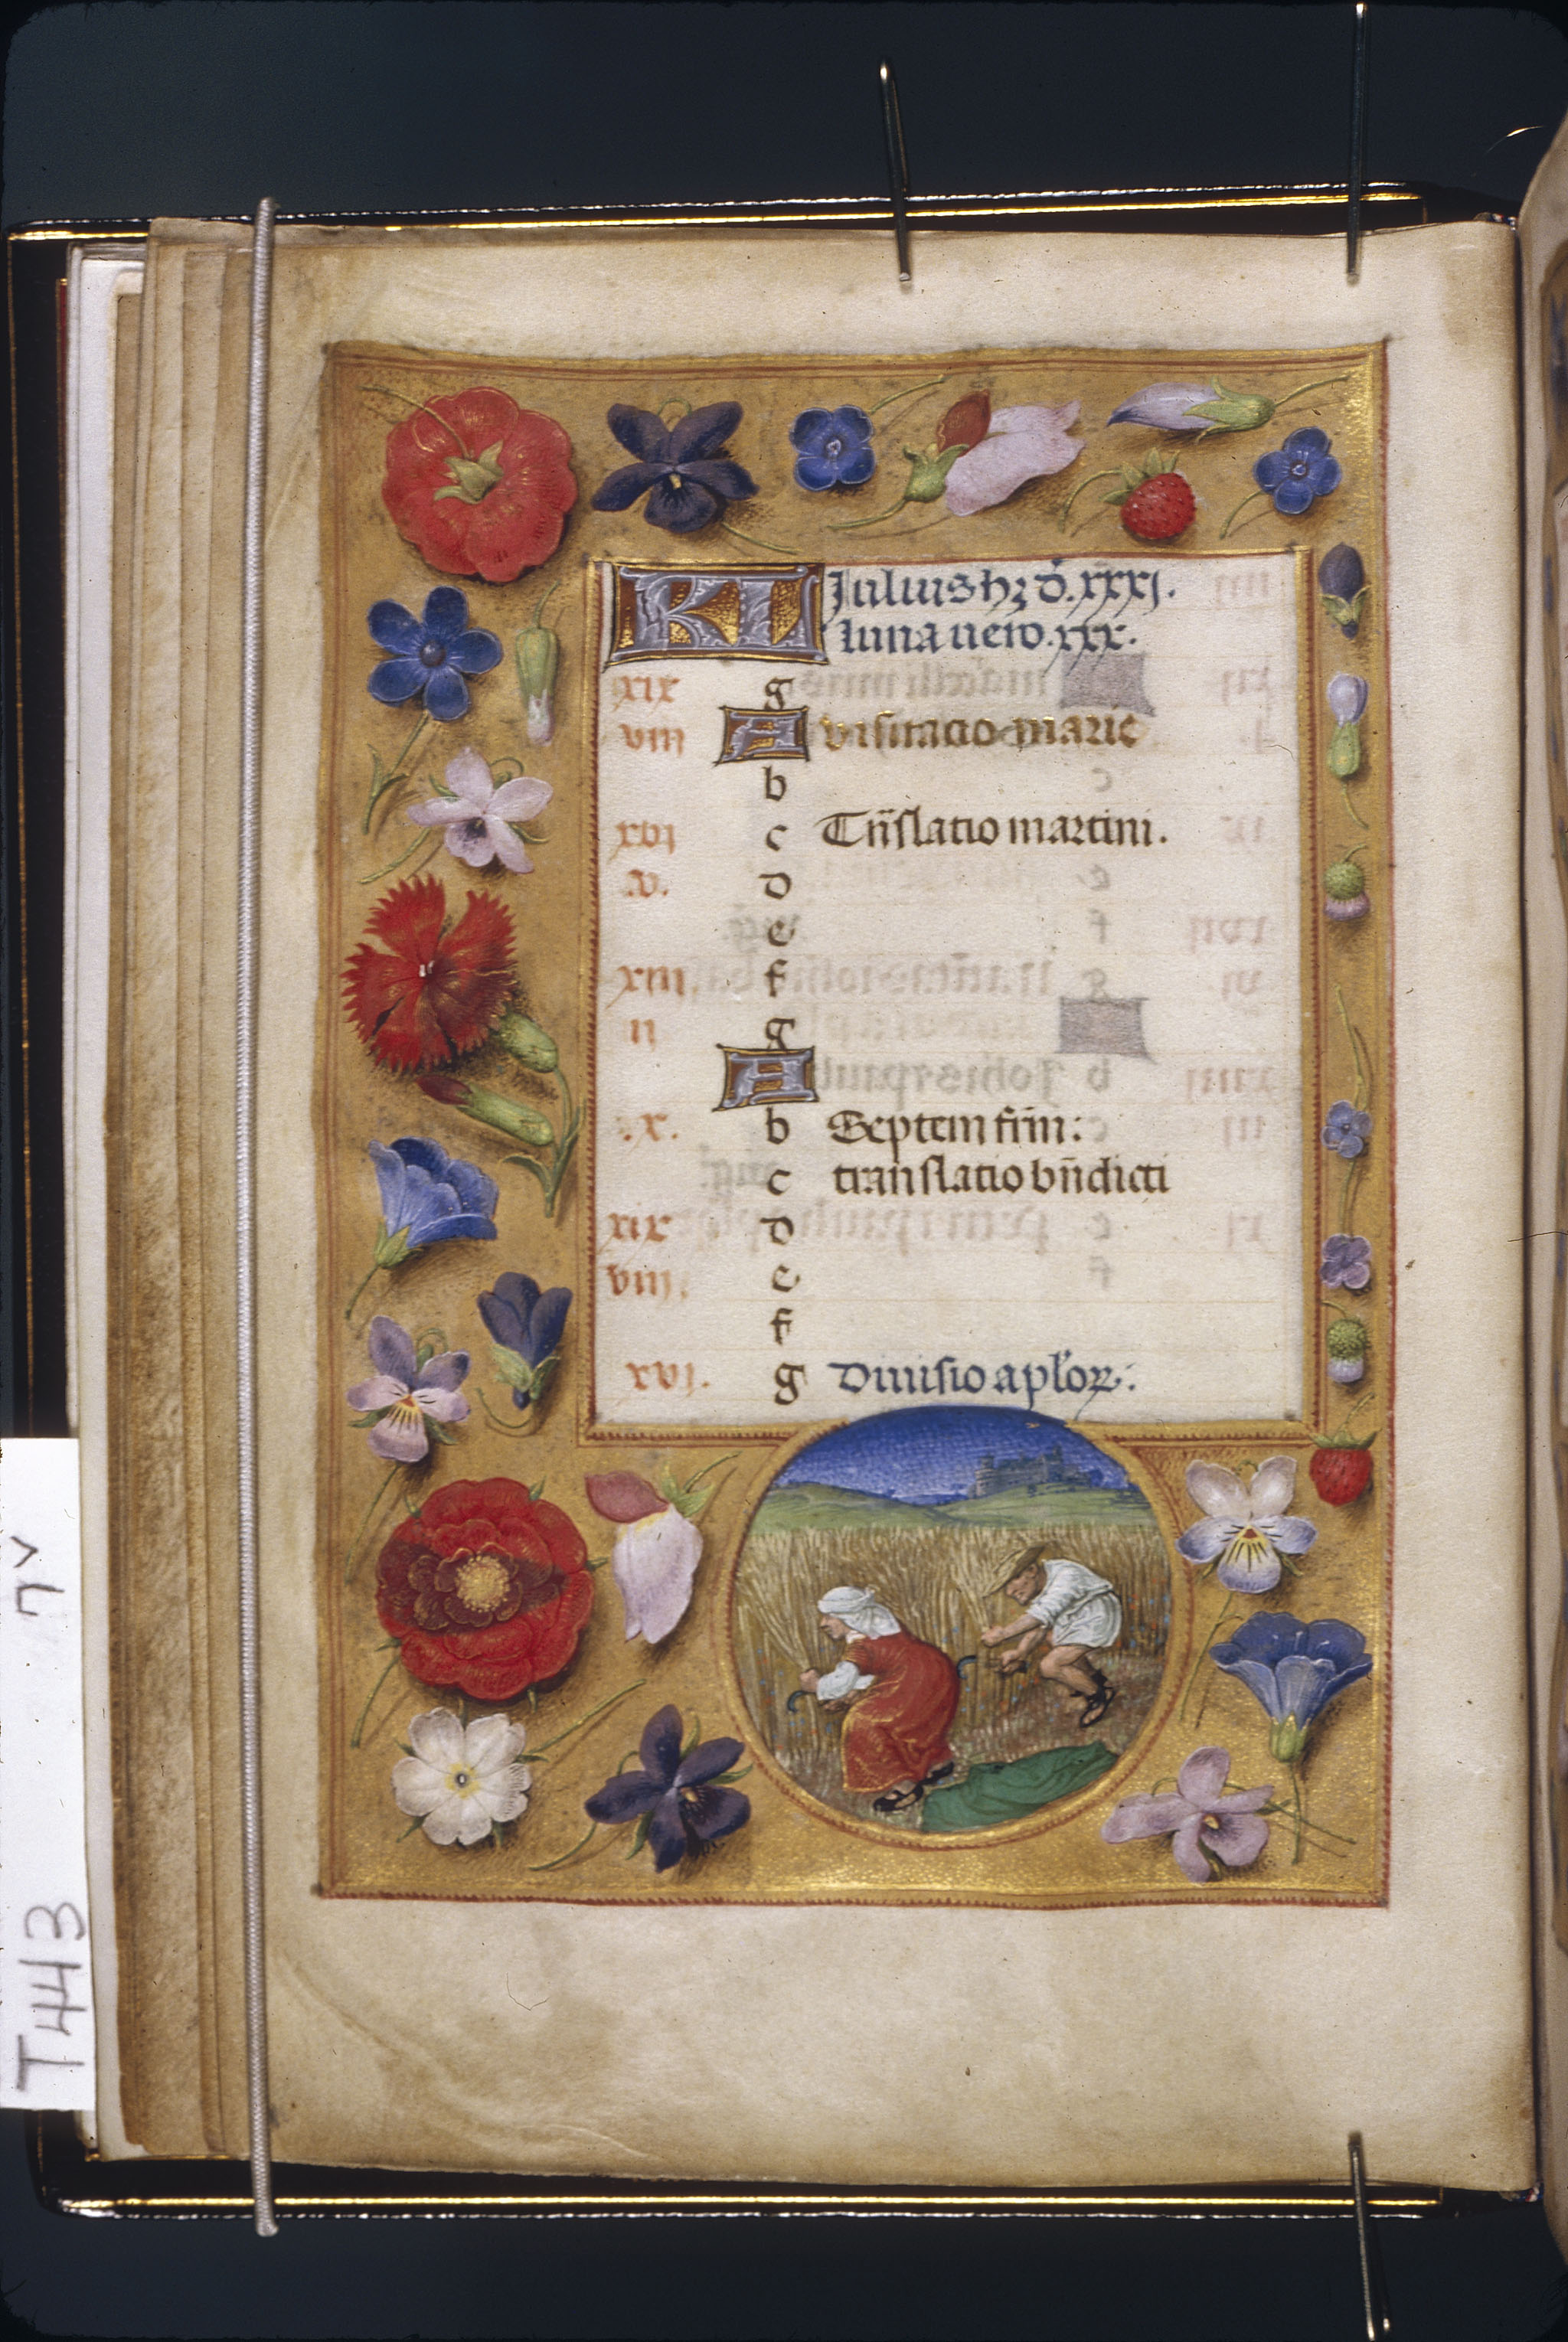 KL Julius hȝ d. xxxj.
luna uero. xxx.
xix g
viii A visitacio marie
b
xvj c Trn̄slatio martini.
.v. d
e
xiii. f
ii g
A
.x. b Septem frm̄:
c translatio bn̄dicti
xix d
viii. e
f
xvj. g Diuisio aplor̄:
7v
T443